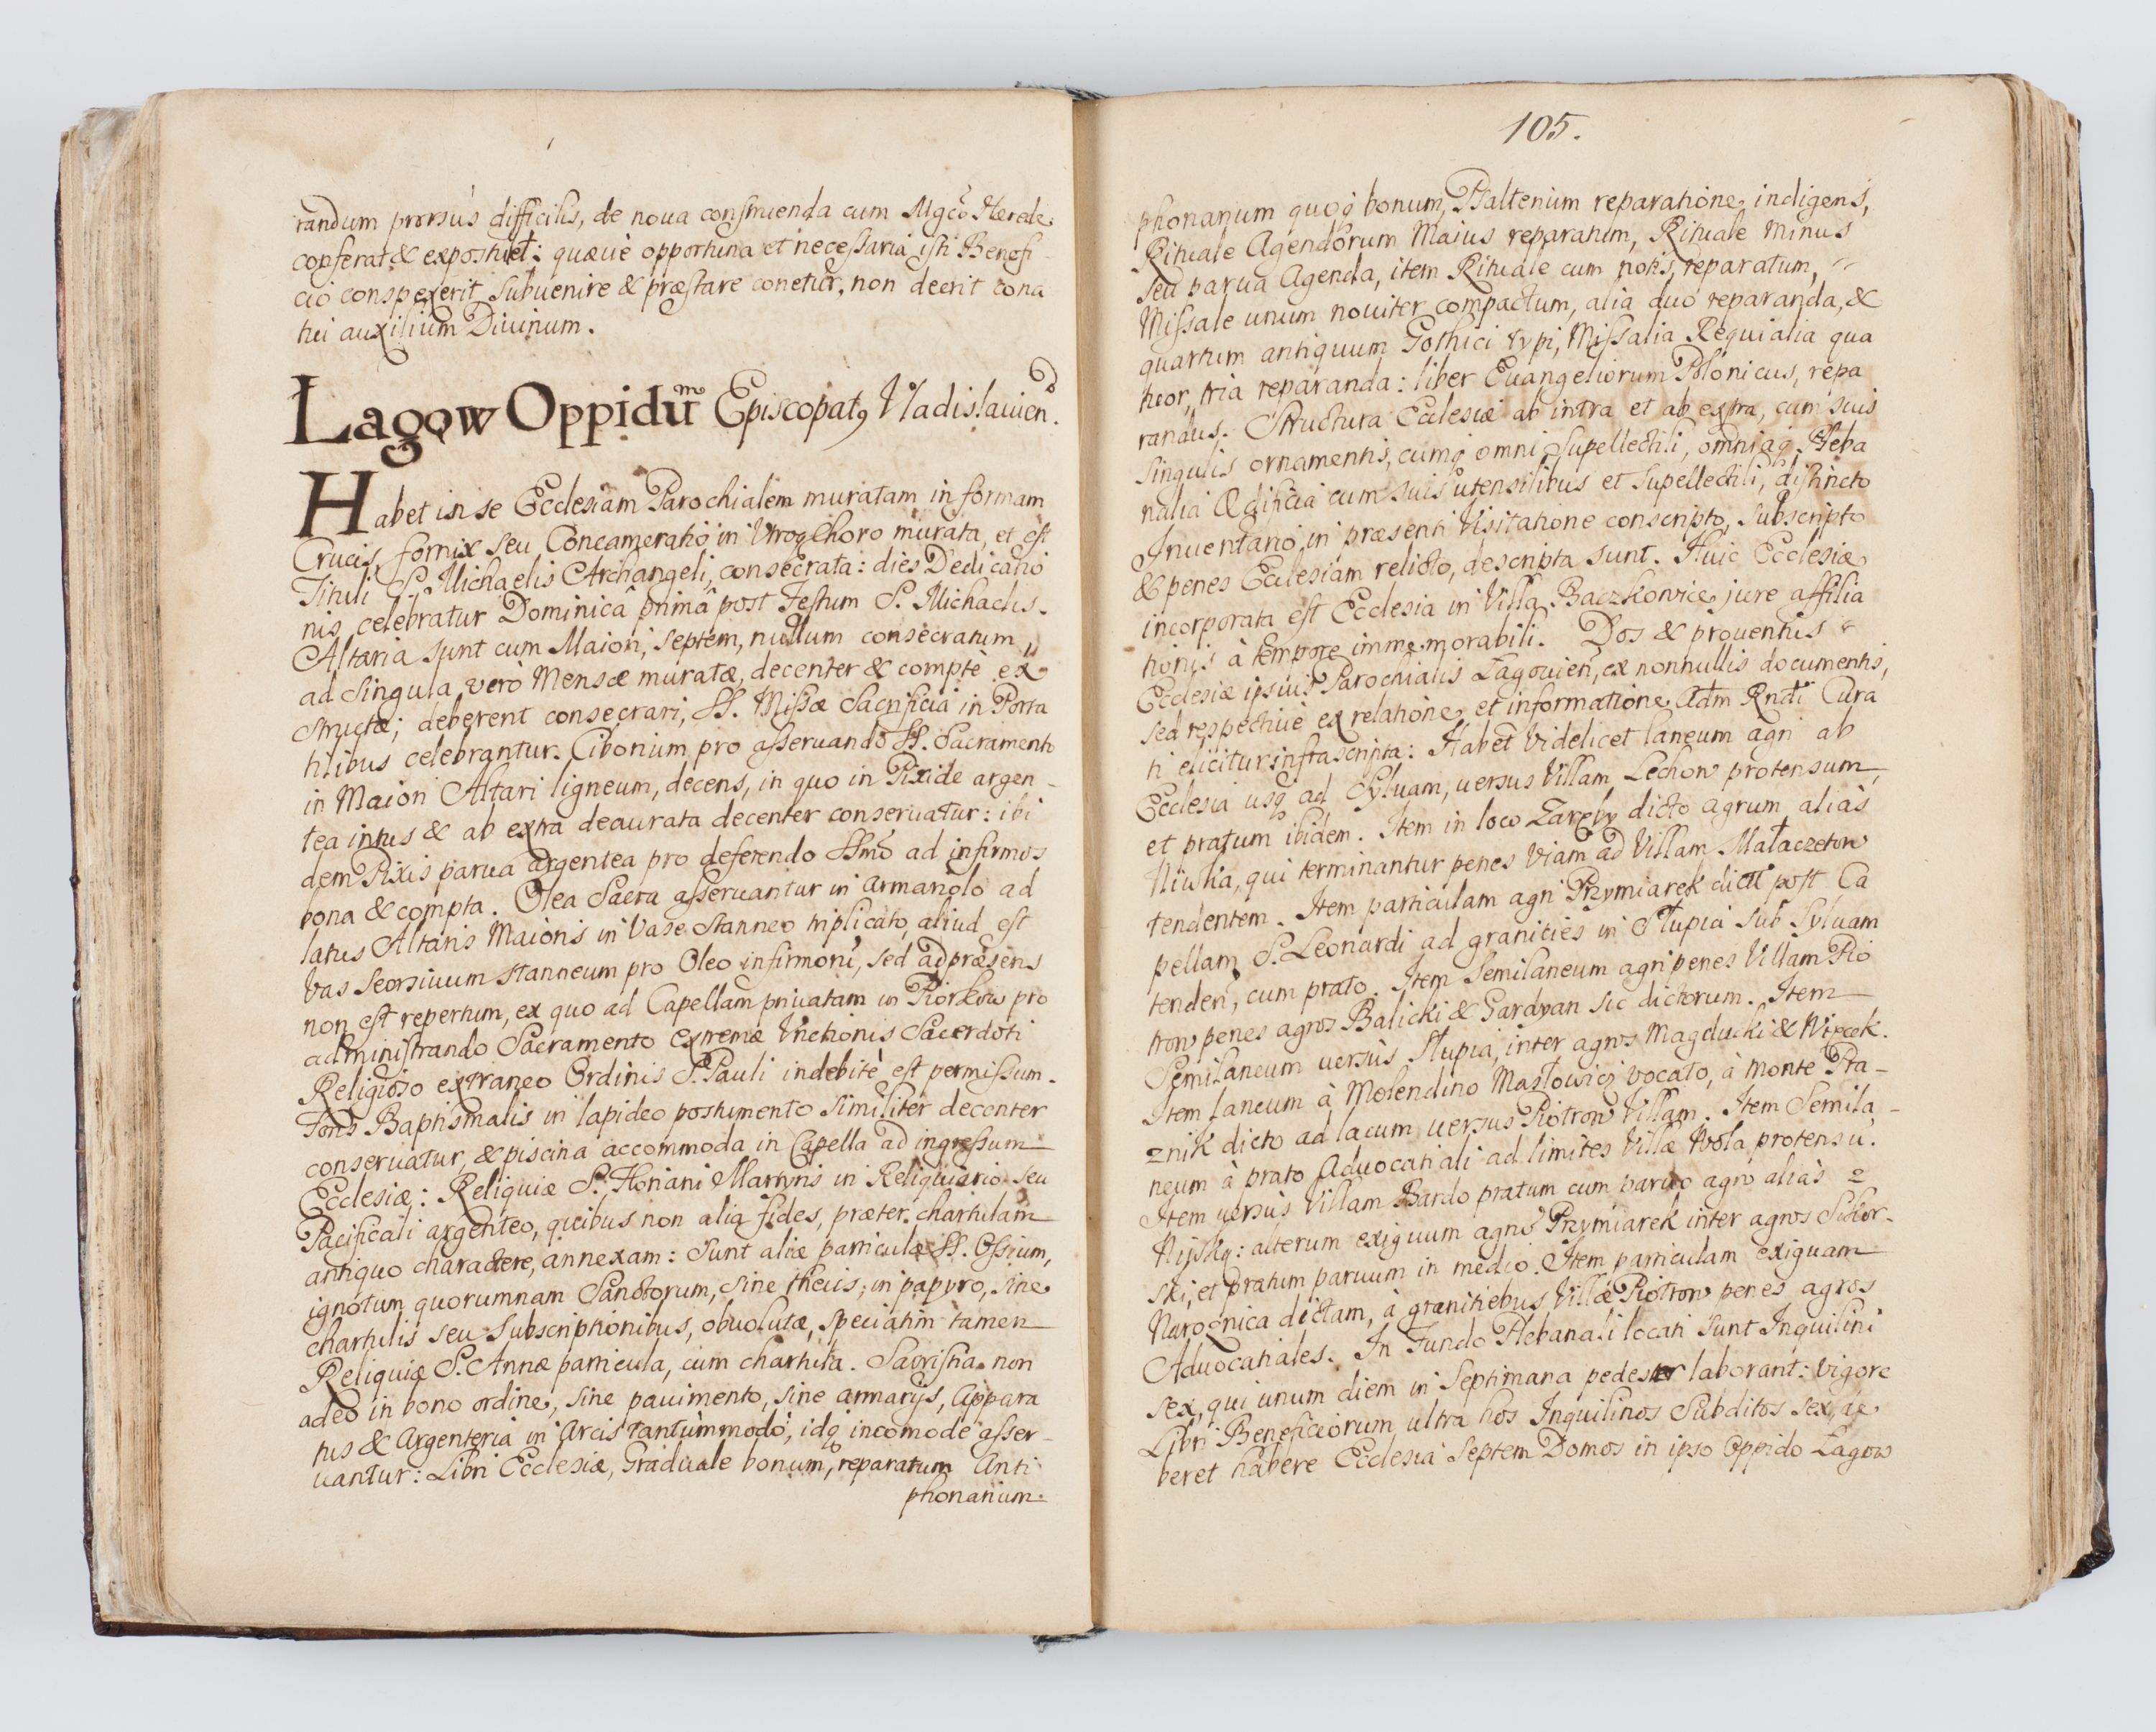 randum prorsùs difficilis, de noua construenda cum Mgco Hærede
conferat & expostulet: quæuè opportuna et necessaria isti Benefi
cio conspexerit, subuenire & præstare conetur, non deerit cona
tui auxilium Diuinum.
Lagow Oppidum Episcopatg Vladislauien.
Habet in se Ecclesiam Parochialem muratam in formam
Crucis, fornix seu Concameratio in Utroq Choro murata, et est
Tituli S. Michaelis Archangeli, consecrata: dies Dedicatio
nis celebratur Dominicâ primâ post Festum S. Michaelis.
Altaria sunt cum Maiori, septem, nullum consecratum,
ad singula verò Mensæ muratæ, decenter & comptè ex
structæ; deberent consecrari, SS. Missæ Sacrificia in Porta
tilibus celebrantur. Ciborium pro asseruando SS. Sacramento
in Maiori Altari ligneum, decens, in quo in Pixide argen-
tea intus & ab extra deaurata decenter conseruatur: ibi
dem Pixis parua argentea pro deferendo SSmo ad infirmos
bona & compta. Olea Sacra asseruantur in armariolo ad
latus Altaris Maioris in Vase Stanneo triplicato, aliud est
Vas Seorsiuum stanneum pro Oleo infirmorũ, sed ad præsens
non est repertum, ex quo ad Capellam priuatam in Piorkow pro
administrando Sacramento Extremæ Unctionis Sacerdoti
Religioso extraneo Ordinis S. Pauli indebitè est permissum.
Fons Baptismalis in lapideo postumento similiter decenter
conseruatur, & piscina accommoda in Capella ad ingressum
Ecclesiæ: Reliquiæ S. Floriani Martyris in Reliquiario seu
Pacificali argenteo, quibus non alia fides, præter chartulam
antiquo charactere, annexam: sunt aliæ particulæ SS. Ossium,
ignotum quorumnam Sanctorum, sine thecis, in papyro, sine
chartulis seu Subscriptionibus, obuolutæ, speciatim tamen
Reliquiæ S. Annæ particula, cum chartula. Sacristia non
adeo in bono ordine, sine pauimento, sine armarijs, Appara
tus & Argenteria in Arcis tantùmmodò, idq incomodè asser-
uantur: Libri Ecclesiæ, Graduale bonum, reparatum Anti
phonarium.
105.
phonarium quoq bonum, Psalterium reparatione indigens,
Rituale Agendorum Maius reparatum, Rituale Minus
seu parua Agenda, item Rituale cum notis, reparatum,
Missale unum nouiter compactum, alia duo reparanda, &
quartum antiquum Gothici typi, Missalia Requialia qua
tuor, tria reparanda: liber Euangeliorum Polonicus, repa
randus. Structura Ecclesiæ ab intra et ab extra, cum suis
singulis ornamentis, cumq omni Supellectili, omniaq Pleba
nalia Ædificia cum suis utensilibus et Supellectili, distincto
Inuentario in præsenti Visitatione conscripto, subscripto
& penes Ecclesiam relicto, descripta sunt. Huic Ecclesiæ
incorporata est Ecclesia in Villa Baczkowice jure affilia
tionis à tempore immemorabili. Dos & prouentus
Ecclesiæ ipsius Parochialis Lagouien, ex nonnullis documentis,
sed respectiuè ex relatione et informatione Adm Rndi Cura
ti elicitur infrascripta: Habet Videlicet laneum agri ab
Ecclesia usq ad Syluam, uersus Villam Lechow protensum,
et pratum ibidem. Item in loco Zaręby dicto agrum aliàs
Niwka, qui terminantur penes Viam ad Villam Małaczetow
tendentem. Item particulam agri Przymiarek dict post Ca
pellam S. Leonardi ad granicies in Słupia sub Syluam
tenden, cum prato. Item Semilaneum agri penes Villam Pio
trow penes agros Balicki & Gardyan sic dictorum. Item
Semilaneum uersùs Słupia, inter agros Magducki & Wipcek.
Item laneum à Molendino Masłowicz vocato, à monte Pra-
znik dicto ad lacum uersus Piotrow Villam. Item Semila-
neum à prato Aduocatiali ad limites Villæ Wola protensũ.
Item uersùs Villam Bardo pratum cum paruo agro aliàs
Niwką: alterum exiguum agrũ Przymiarek inter agros Sikor-
ski, et pratum paruum in medio. Item particulam exiguam
Narożnica dictam, à granitiebus Villæ Piotrow penes agros
Aduocatiales. In Fundo Plebanali locati sunt Inquilini
sex, qui unum diem in Septimana pedester laborant: vigore
Libri Beneficiorum ultra hos Inquilinos Subditos sex, de
beret habere Ecclesia septem Domos in ipso Oppido Lagow